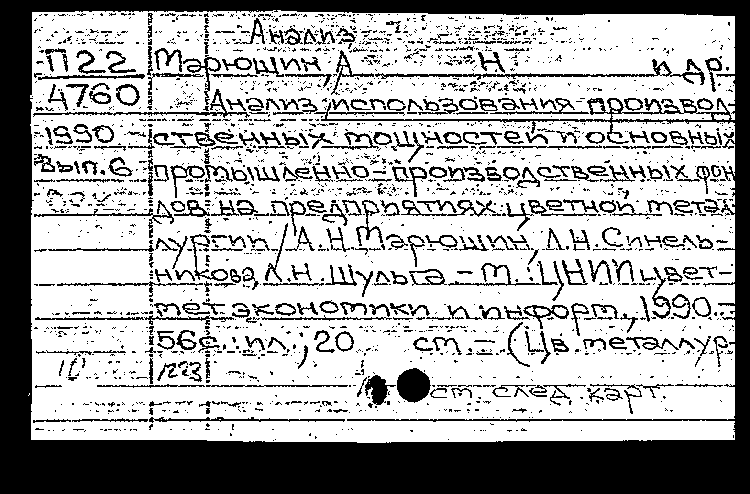 Анализ
П22 Марюшин, А Н. и др.
4760 Анализ использования производ-
1990 ственных мощностей и основных
Вып.6 промышленно-производственных фон
дов на предприятиях цветной метал
лургии / А.Н. Марюшин, Л.Н. Синель-
никова, Л.Н. Шульга. – М.: ЦНИИцвет-
мет экономики и информ., 1990. –
56с.: ил.; 20 см. – (Цв. металлур-
10 1223
см. след. карт.